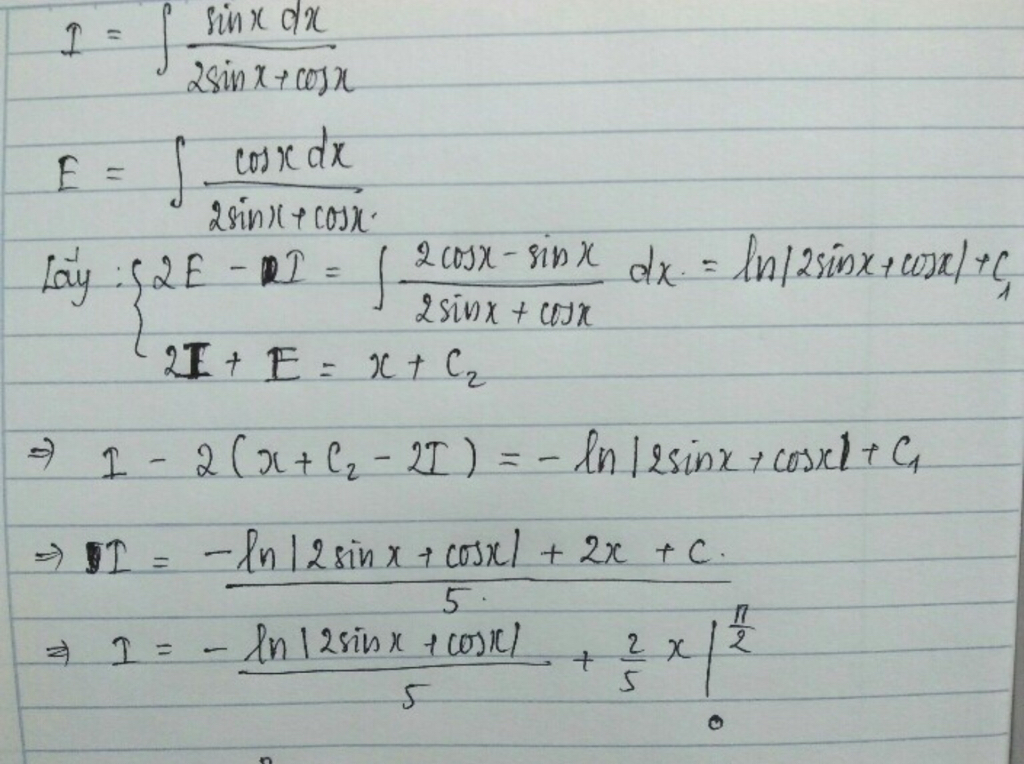 I = ∫ sinx dx / 2sinx + cosx
E = ∫ cosx dx / 2sinx + cosx.
Lấy : { 2E - I = ∫ 2cosx - sinx / 2sinx + cosx dx. = ln|2sinx + cosx| + C₁
2I + E = x + C₂
⇒ I - 2(x + C₂ - 2I) = - ln|2sinx + cosx| + C₁
⇒ I = -ln|2sinx + cosx| + 2x + C. / 5.
⇒ I = - ln|2sinx + cosx| / 5 + 2/5 x |₀^(π/2)